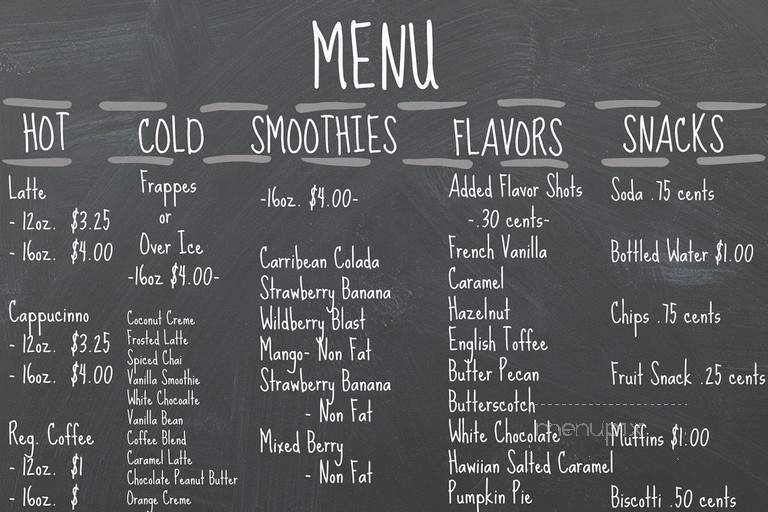 MENU
HOT
Latte
- 12oz. $3.25
- 16oz. $4.00
Cappucinno
- 12oz. $3.25
- 16oz. $4.00
Reg. Coffee
- 12oz. $1
- 16oz. $
COLD
Frappes
or
Over Ice
-16oz $4.00-
Coconut Creme
Frosted Latte
Spiced Chai
Vanilla Smoothie
White Chocoalte
Vanilla Bean
Coffee Blend
Caramel Latte
Chocolate Peanut Butter
Orange Creme
SMOOTHIES
-16oz. $4.00-
Carribean Colada
Strawberry Banana
Wildberry Blast
Mango- Non Fat
Strawberry Banana
- Non Fat
Mixed Berry
- Non Fat
FLAVORS
Added Flavor Shots
-.30 cents-
French Vanilla
Caramel
Hazelnut
English Toffee
Butter Pecan
Butterscotch
White Chocolate
Hawiian Salted Caramel
Pumpkin Pie
SNACKS
Soda .75 cents
Bottled Water $1.00
Chips .75 cents
Fruit Snack .25 cents
Muffins $1.00
Biscotti .50 cents
menupix